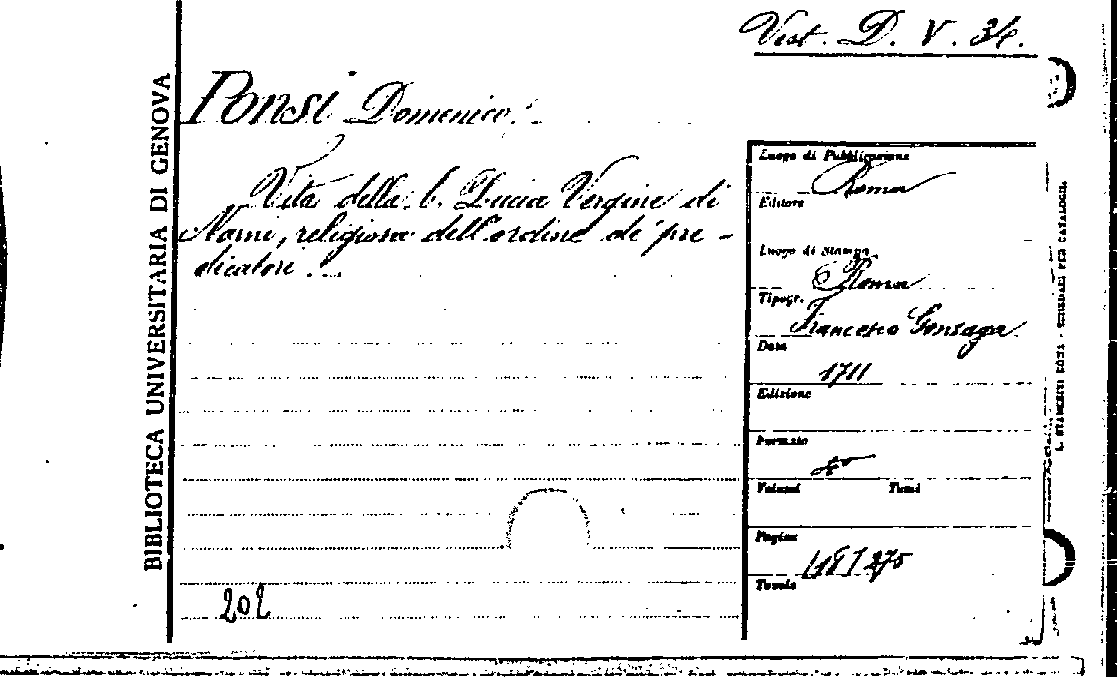 Vest. D. V. 34.
BIBLIOTECA UNIVERSITARIA DI GENOVA
Ponsi Domenico.
Vita della b. Lucia Vergine di
Narni, religiosa dell'ordine de' pre-
dicatori ...
202
Luogo di Pubblicazione
Roma
Editore
Luogo di Stampa
Roma
Tipogr.
Francesco Gonzaga
Data
1711
Edizione
Formato
4º
Volumi Tomi
Pagine
275
Tavole